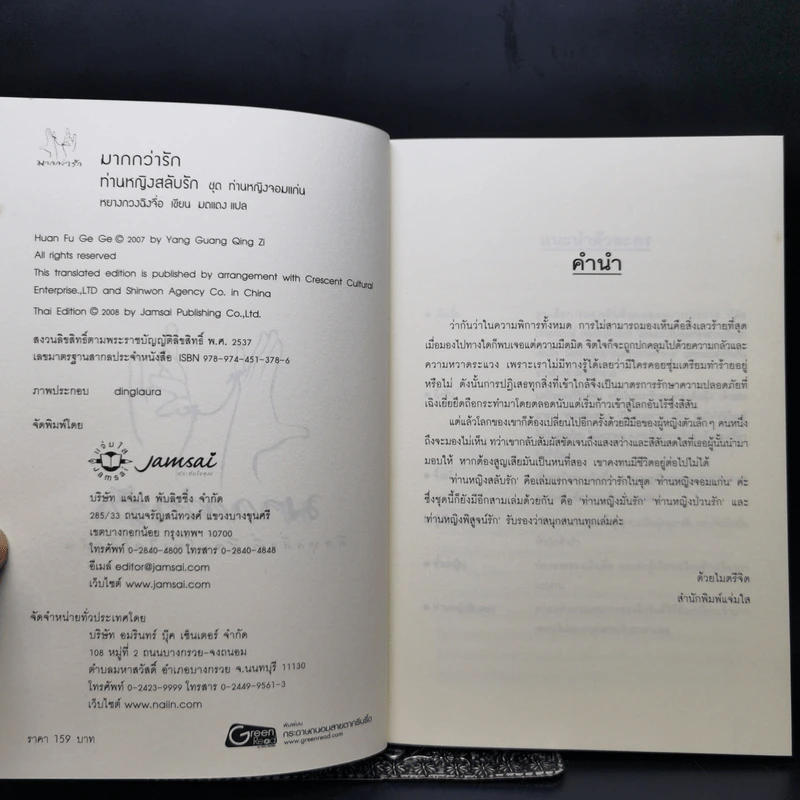 มากกว่ารัก
มากกว่ารัก
ท่านหญิงสลับรัก ชุด ท่านหญิงจอมแก่น
หยางกวงฉิงจื่อ เขียน มดแดง แปล
Huan Fu Ge Ge © 2007 by Yang Guang Qing Zi
All rights reserved
This translated edition is published by arrangement with Crescent Cultural
Enterprise.,LTD and Shinwon Agency Co. in China
Thai Edition © 2008 by Jamsai Publishing Co.,Ltd.
สงวนลิขสิทธิ์ตามพระราชบัญญัติลิขสิทธิ์ พ.ศ. 2537
เลขมาตรฐานสากลประจำหนังสือ ISBN 978-974-451-378-6
ภาพประกอบ dinglaura
จัดพิมพ์โดย
แจ่มใส
JAMSAI
Jamsai
บริษัท แจ่มใส พับลิชชิ่ง จำกัด
285/33 ถนนจรัญสนิทวงศ์ แขวงบางขุนศรี
เขตบางกอกน้อย กรุงเทพฯ 10700
โทรศัพท์ 0-2840-4800 โทรสาร 0-2840-4848
อีเมล์ editor@jamsai.com
เว็บไซต์ www.jamsai.com
จัดจำหน่ายทั่วประเทศโดย
บริษัท อมรินทร์ บุ๊ค เซ็นเตอร์ จำกัด
108 หมู่ที่ 2 ถนนบางกรวย-จงถนอม
ตำบลมหาสวัสดิ์ อำเภอบางกรวย จ.นนทบุรี 11130
โทรศัพท์ 0-2423-9999 โทรสาร 0-2449-9561-3
เว็บไซต์ www.naiin.com
ราคา 159 บาท
Green Read
พิมพ์บน
กระดาษถนอมสายตากรีนรี้ด
www.greenread.com
คำนำ
ว่ากันว่าในความพิการทั้งหมด การไม่สามารถมองเห็นคือสิ่งเลวร้ายที่สุด
เมื่อมองไปทางใดก็พบเจอแต่ความมืดมิด จิตใจก็จะถูกปกคลุมไปด้วยความกลัวและ
ความหวาดระแวง เพราะเราไม่มีทางรู้ได้เลยว่ามีใครคอยซุ่มเตรียมทำร้ายอยู่
หรือไม่ ดังนั้นการปฏิเสธทุกสิ่งที่เข้าใกล้จึงเป็นมาตรการรักษาความปลอดภัยที่
เฉิงเยี่ยยึดถือกระทำมาโดยตลอดนับแต่เริ่มก้าวเข้าสู่โลกอันไร้ซึ่งสีสัน
แต่แล้วโลกของเขาก็ต้องเปลี่ยนไปอีกครั้งด้วยฝีมือของผู้หญิงตัวเล็กๆ คนหนึ่ง
ถึงจะมองไม่เห็น ทว่าเขากลับสัมผัสชัดเจนถึงแสงสว่างและสีสันสดใสที่เธอผู้นั้นนำมา
มอบให้ หากต้องสูญเสียมันเป็นหนที่สอง เขาคงทนมีชีวิตอยู่ต่อไปไม่ได้
'ท่านหญิงสลับรัก' คือเล่มแรกจากมากกว่ารักในชุด 'ท่านหญิงจอมแก่น' ค่ะ
ซึ่งชุดนี้ก็ยังมีอีกสามเล่มด้วยกัน คือ 'ท่านหญิงมั่นรัก' 'ท่านหญิงป่วนรัก' และ
'ท่านหญิงพิสูจน์รัก' รับรองว่าสนุกสนานทุกเล่มค่ะ
ด้วยไมตรีจิต
สำนักพิมพ์แจ่มใส